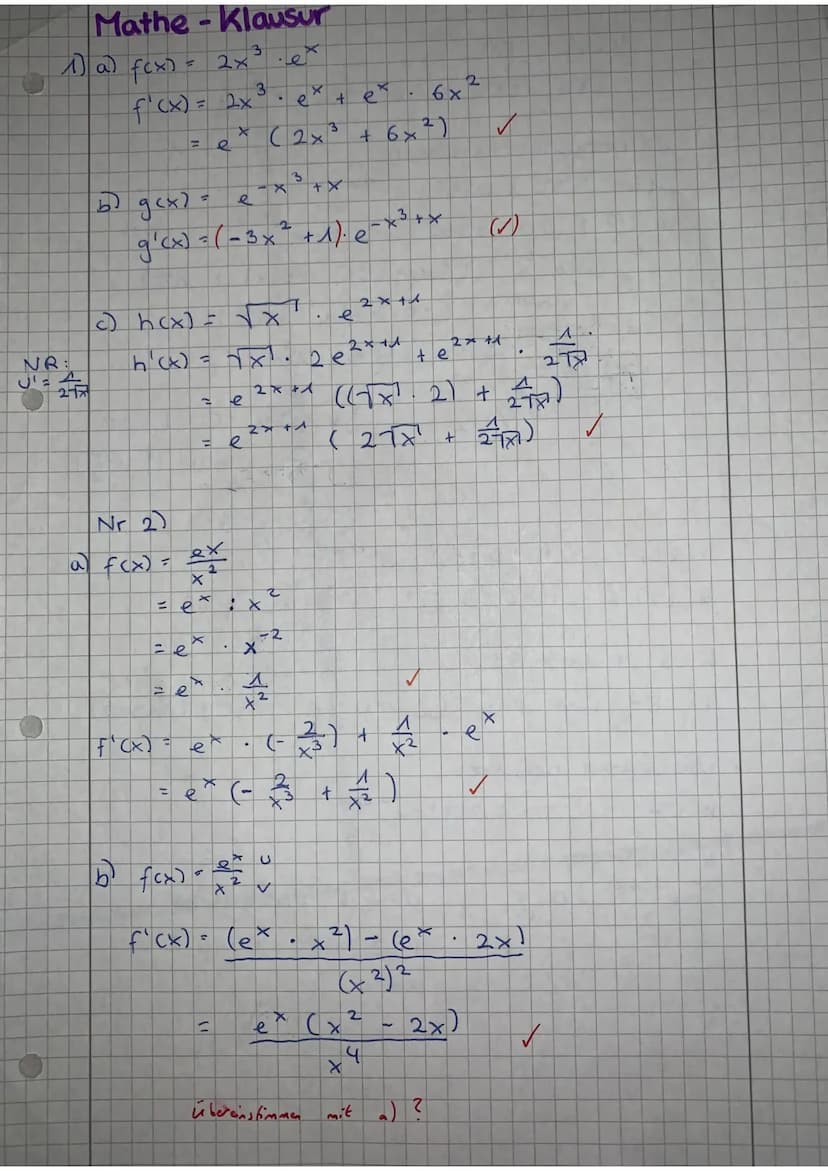 Mathe - Klausur
1) a) f(x) = 2x³ · eˣ
f'(x) = 2x³ · eˣ + eˣ · 6x²
= eˣ (2x³ + 6x²) ✓
b) g(x) = e^(-x³+x)
g'(x) = (-3x² + 1) · e^(-x³+x) (✓)
c) h(x) = √x · e^(2x+1)
NR: h'(x) = √x · 2e^(2x+1) + e^(2x+1) · 1/(2√x)
u' = 1/(2√x)
= e^(2x+1) ((√x · 2) + 1/(2√x))
= e^(2x+1) (2√x + 1/(2√x)) ✓
Nr 2)
a) f(x) = eˣ/x²
= eˣ : x²
= eˣ · x⁻²
= eˣ · 1/x² ✓
f'(x) = eˣ · (-2/x³) + 1/x² · eˣ
= eˣ (-2/x³ + 1/x²) ✓
b) f(x) = eˣ/x² u v
f'(x) = ((eˣ · x²) - (eˣ · 2x))/(x²)²
= eˣ (x² - 2x)/x⁴ ✓
Übereinstimmen mit a) ?